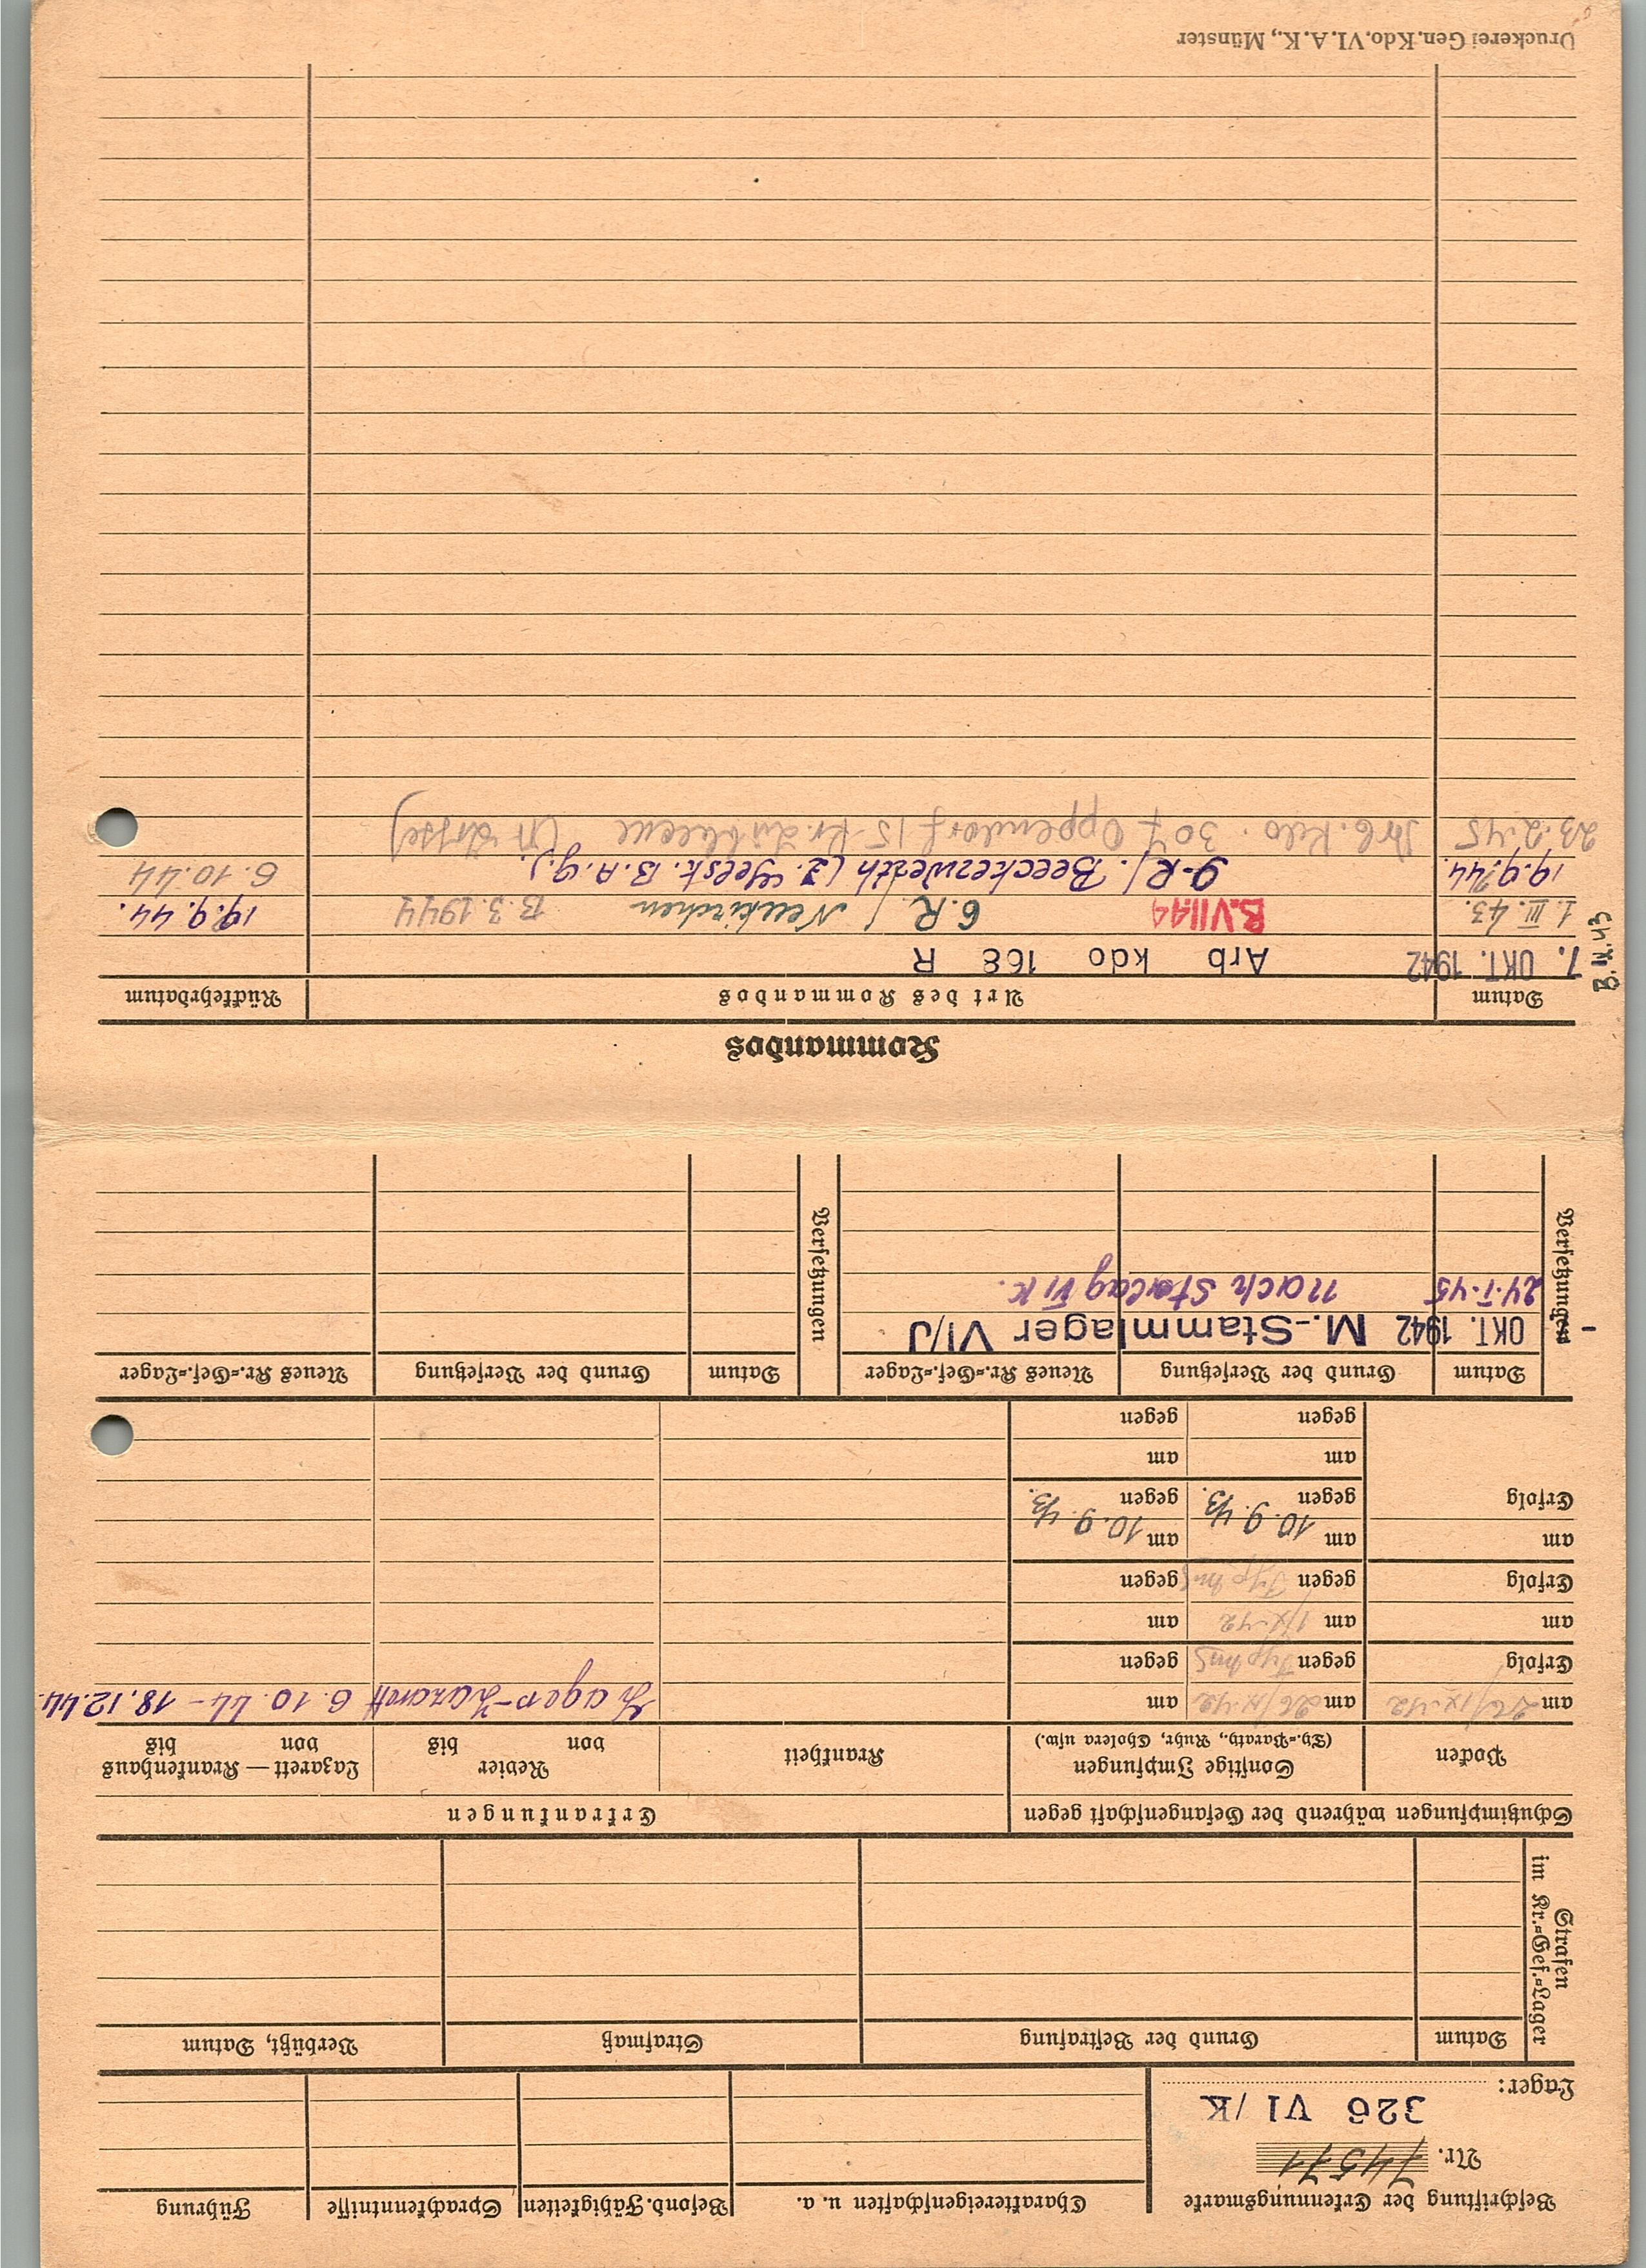 Beschriftung der Erkennungsmarke
Nr. 74571
326 VI/K
Lager:
Charaktereigenschaften u. a.
Besond. Fähigkeiten
Sprachkenntnisse
Führung
Strafen im Kr.=Gef.=Lager
Datum
Grund der Bestrafung
Strafmaß
Verbüßt, Datum
Schutzimpfungen während der Gefangenschaft gegen
Erkrankungen
Pocken
Sonstige Impfungen
(Ty.=Paraty., Ruhr, Cholera usw.)
Krankheit
Revier
von bis
Lazarett — Krankenhaus
von bis
am 26/IX.42 am 26/IX.42 am Lager-Lazarett 6.10.44 - 18.12.44.
Erfolg gegen Typhus gegen
am am 1/X.42 am
Erfolg gegen Typhus gegen
am am 10.9.43. am 10.9.43.
Erfolg gegen gegen
am am
gegen gegen
Versetzungen
Datum Grund der Versetzung Neues Kr.=Gef.=Lager
Versetzungen
Datum Grund der Versetzung Neues Kr.=Gef.=Lager
- OKT. 1942 M.-Stammlager VI/J
24.I.45 nach Stalag VI K.
Kommandos
Datum Art des Kommandos Rückkehrdatum
7. OKT. 1942 Arb kdo 168 R
8.XI.43
1.III.43. B.VII.44 6.R/ Neukirchen 13.3.1944 19.9.44.
19.9.44. 9-R/. Beeckerwerth (z. Gelsk. B.A.G.). 6.10.44
23.2.45 Arb. Kdo. 307 Oppendorf 15 Kr. Lübbecke
Druckerei Gen. Kdo. VI. A. K., Münster